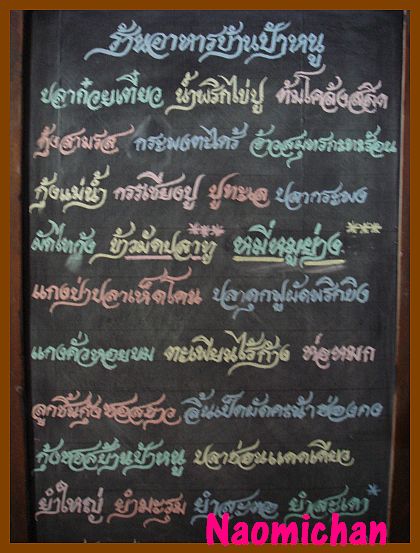 ร้านอาหารบ้านป้าหนู
ปลาก๋วยเตี๋ยว น้ำพริกไข่ปู ต้มโคล้งสลิด
กุ้งสามรส กระพงตะไคร้ อ่าวสมุทรกะทะร้อน
กุ้งแม่น้ำ กรรเชียงปู ปูทะเล ปลากระพง
ผัดไทกุ้ง ข้าวผัดปลาทู *** หมี่หมูย่าง ***
แกงป่าปลาเห็ดโคน ปลาดุกฟูผัดพริกขิง
แกงคั่วหอยขม ตะเพียนไร้ก้าง ห่อหมก
ลูกชิ้นกุ้งซอสขาว ลิ้นเป็ดผัดคะน้าฮ่องกง
กุ้งซอสบ้านป้าหนู ปลาช่อนแดดเดียว
ยำใหญ่ ยำมะรุม ยำสะตอ ยำสะเดา *
Naomichan